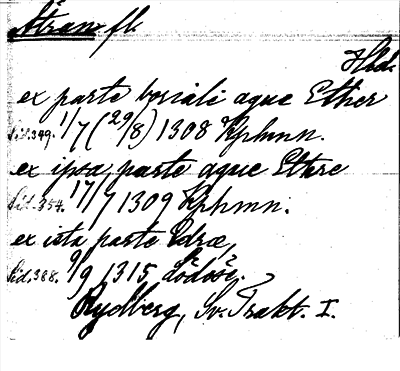 Ätran fl.
Hld.
ex parte boriali aque Ether
Sid. 349. 1/7 (29/8) 1308 Kphmn.
ex ipsa parte aque Ettere
Sid. 354. 17/7 1309 Kphmn.
ex ista parte Edræ,
Sid. 388. 9/9 1315 Lödöse.
Rydberg, Sv. Trakt. I.